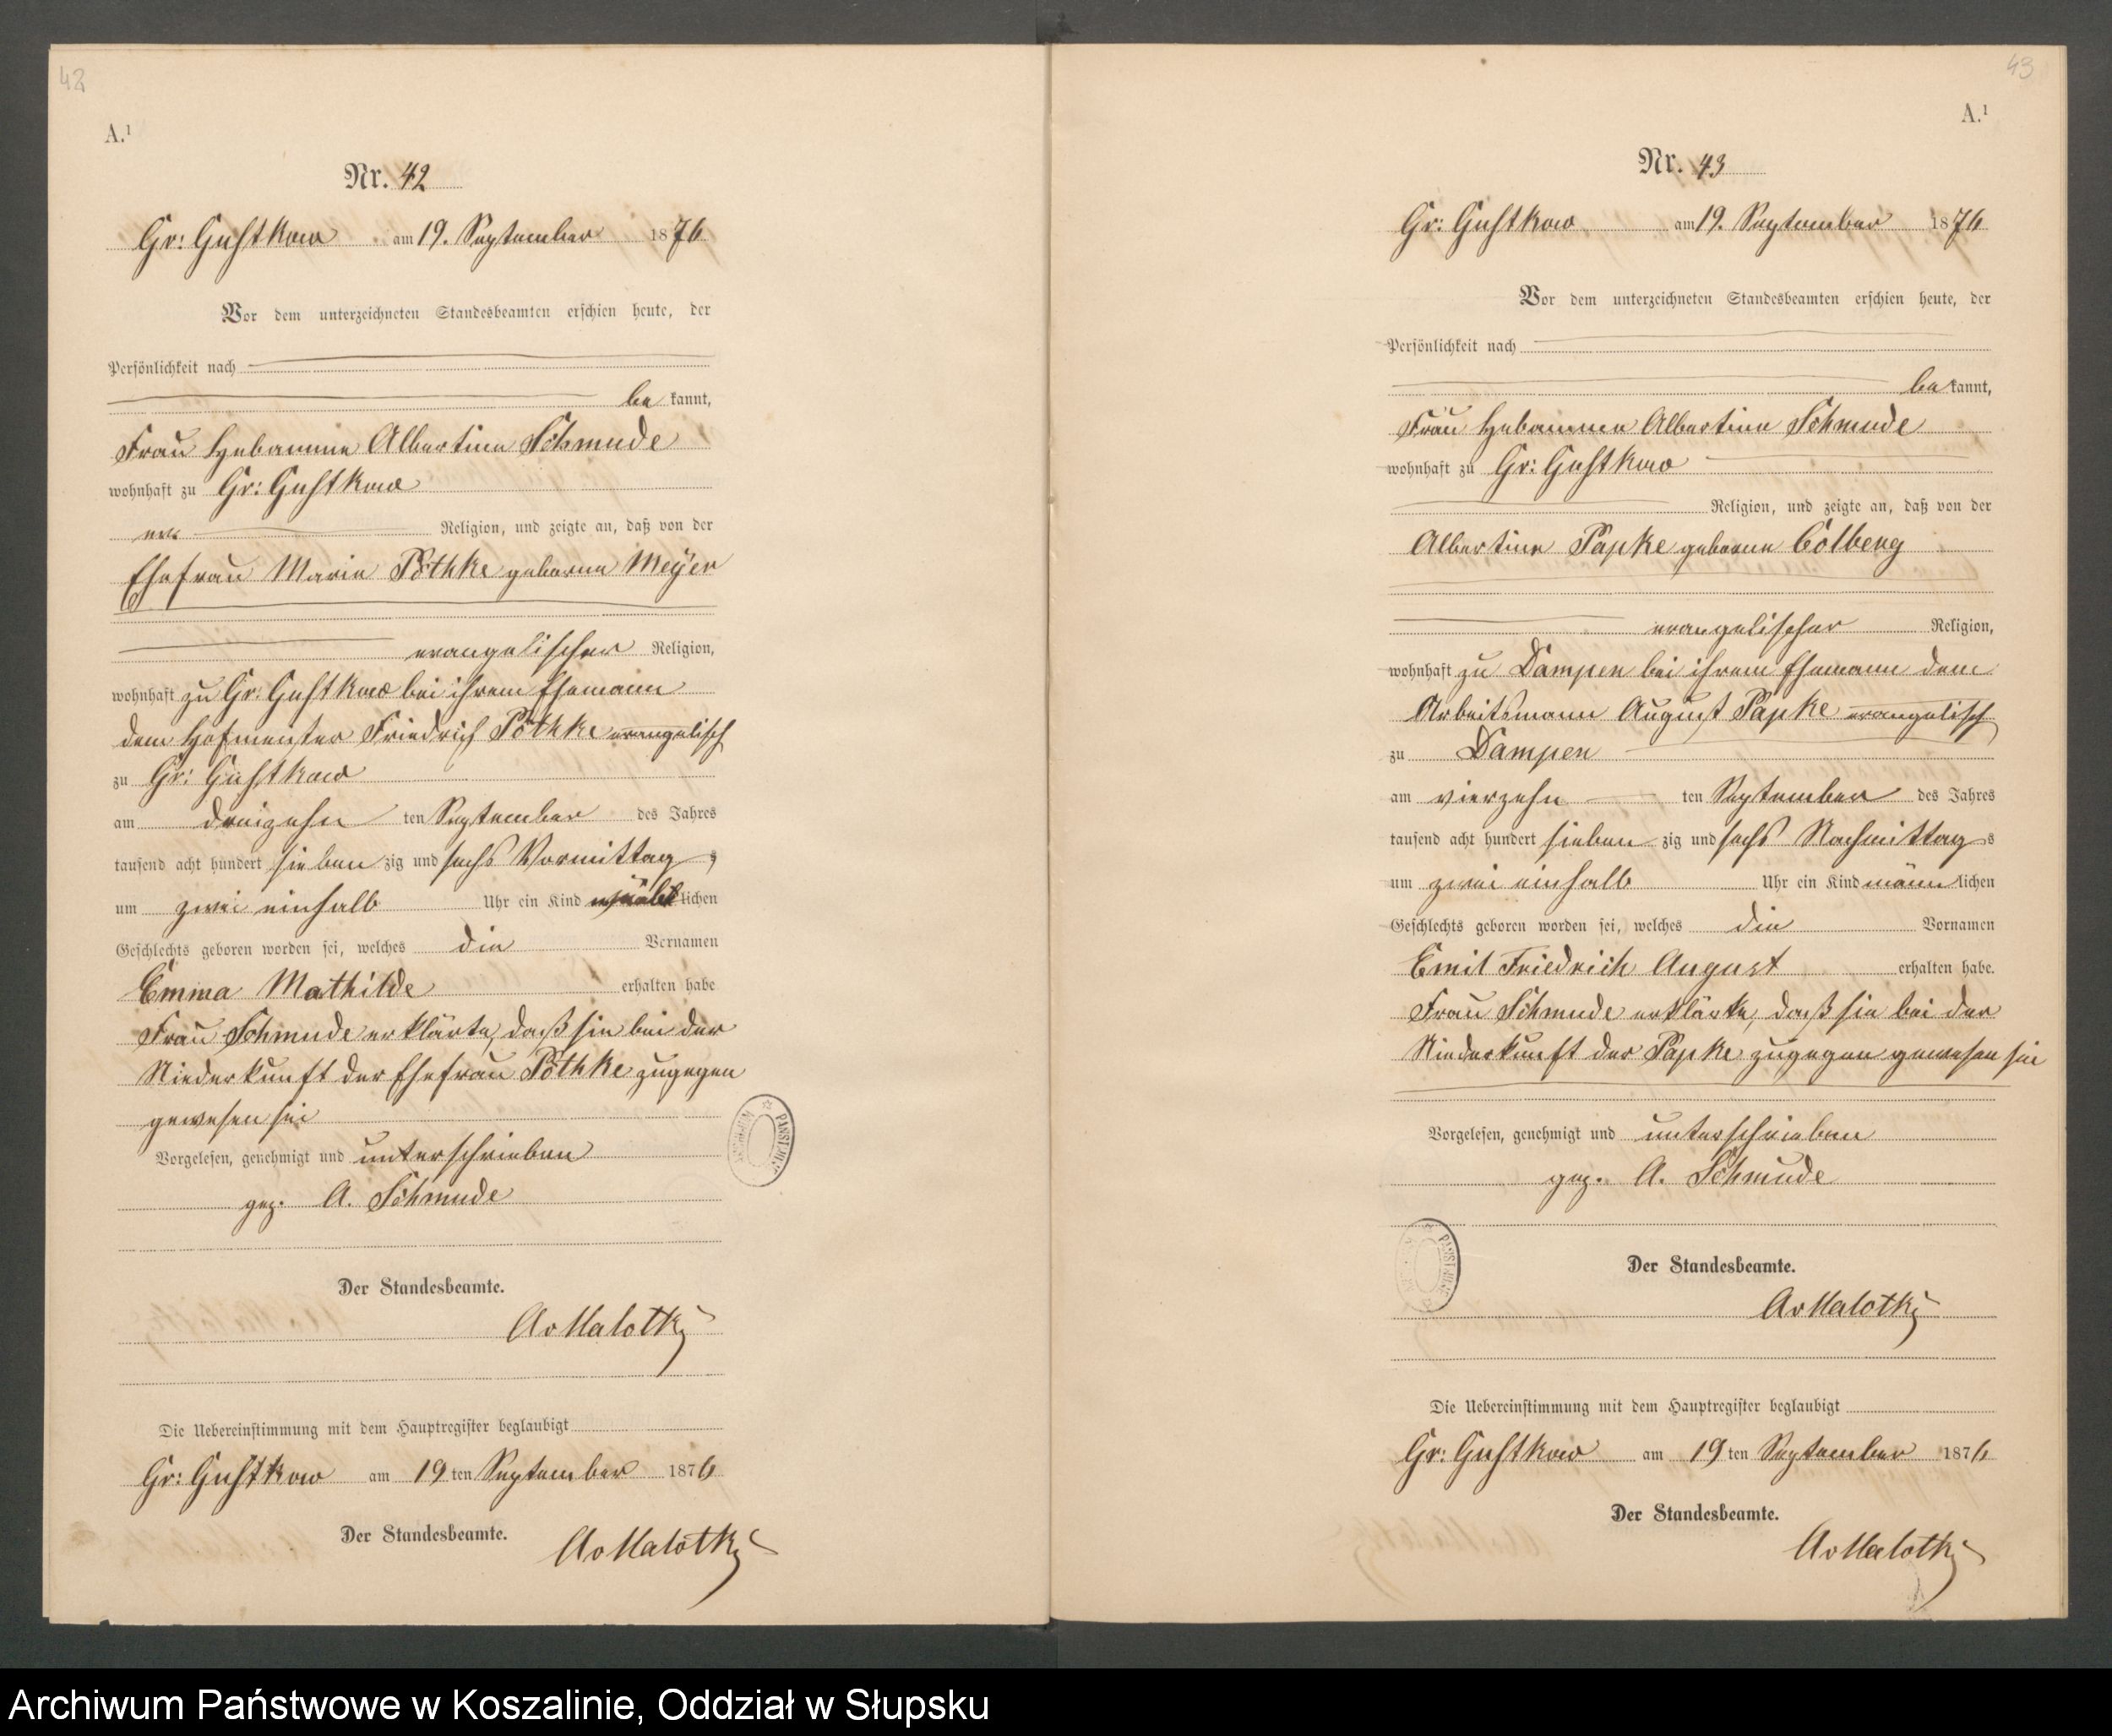 42
A.¹
Nr. 42
Gr: Gustkow am 19. September 1876
Vor dem unterzeichneten Standesbeamten erschien heute, der
Persönlichkeit nach
be kannt,
Frau Hebamme Albertine Schmude
wohnhaft zu Gr: Gustkow
Religion, und zeigte an, daß von der
Ehefrau Marie Pöthke geborne Meÿer
evangelischer Religion,
wohnhaft zu Gr: Gustkow bei ihrem Ehemann
dem Hofmeister Friedrich Pöthke evangelisch
zu Gr: Gustkow
am dreizehn ten September des Jahres
tausend acht hundert sieben zig und sechs Vormittag s
um zwei einhalb Uhr ein Kind lichen
Geschlechts geboren worden sei, welches die Vornamen
Emma Mathilde erhalten habe
Frau Schmude erklärte, daß sie bei der
Niederkunft der Ehefrau Pöthke zugegen
gewesen sei
Vorgelesen, genehmigt und unterschrieben
gez. A. Schmude
Der Standesbeamte.
AvMalotki
Die Uebereinstimmung mit dem Hauptregister beglaubigt
Gr: Gustkow am 19 ten September 1876
Der Standesbeamte.
AvMalotki
43
A.¹
Nr. 43
Gr: Gustkow am 19. September 1876
Vor dem unterzeichneten Standesbeamten erschien heute, der
Persönlichkeit nach
be kannt,
Frau Hebamme Albertine Schmude
wohnhaft zu Gr: Gustkow
Religion, und zeigte an, daß von der
Albertine Papke geborne Colberg
evangelischer Religion,
wohnhaft zu Dampen bei ihrem Ehemann dem
Arbeitsmann August Papke evangelisch
zu Dampen
am vierzehn ten September des Jahres
tausend acht hundert sieben zig und sechs Nachmittag s
um zwei einhalb Uhr ein Kind männ lichen
Geschlechts geboren worden sei, welches die Vornamen
Emil Friedrich August erhalten habe.
Frau Schmude erklärte, daß sie bei der
Niederkunft der Papke zugegen gewesen sei
Vorgelesen, genehmigt und unterschrieben
gez. A. Schmude
Der Standesbeamte.
AvMalotki
Die Uebereinstimmung mit dem Hauptregister beglaubigt
Gr: Gustkow am 19 ten September 1876
Der Standesbeamte.
AvMalotki
Archiwum Państwowe w Koszalinie, Oddział w Słupsku